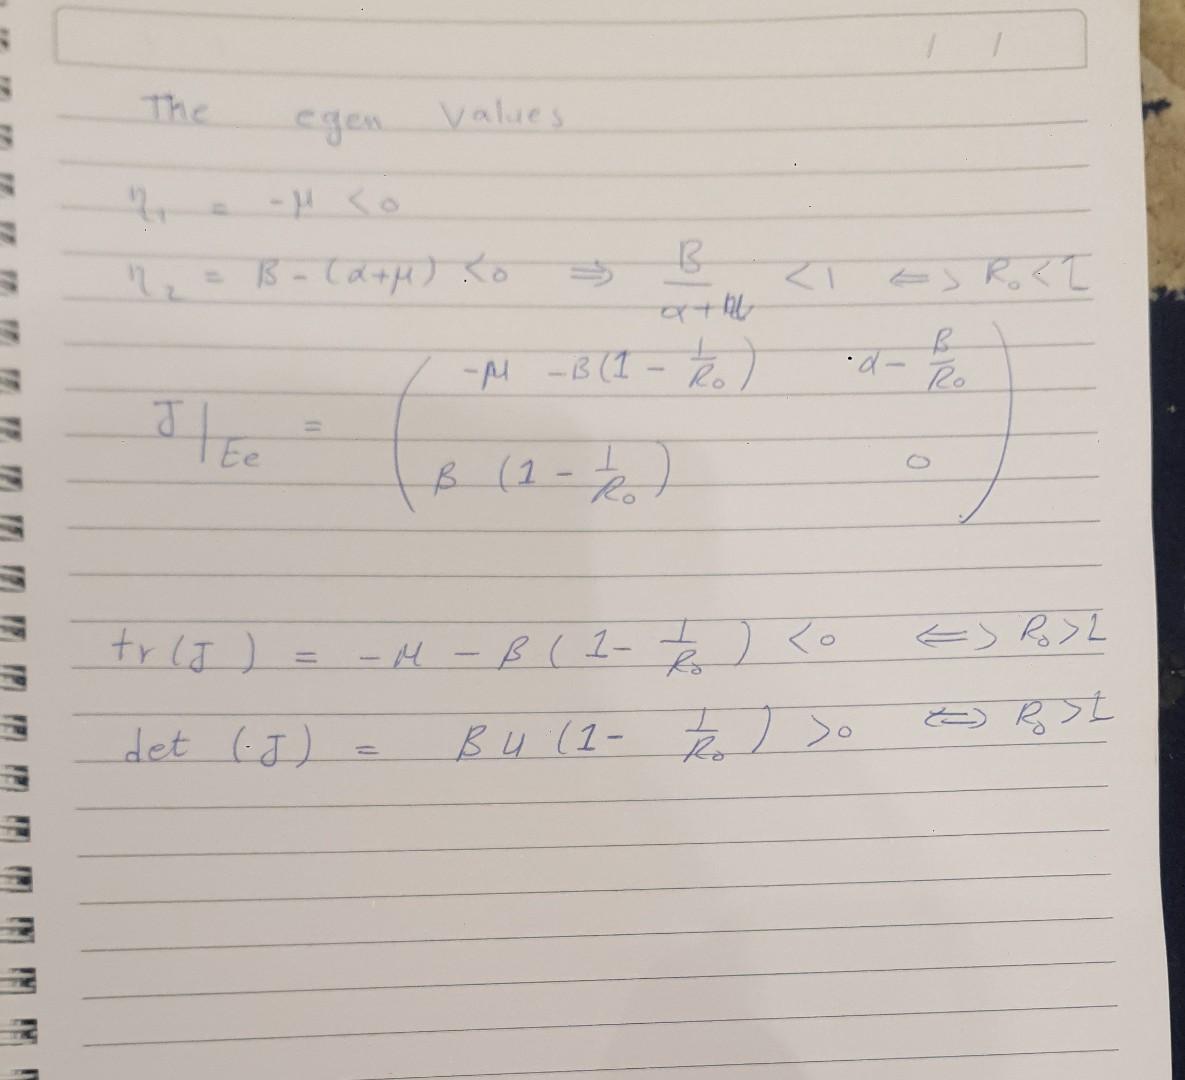 The egen values
η₁ = -μ < 0
η₂ = β - (α+μ) < 0 ⇒ β/(α+μ) < 1 ⇔ R₀ < 1
J|Ee = ( -μ -β(1 - 1/R₀)   α - β/R₀
β (1 - 1/R₀)   0 )
tr(J) = -μ - β(1 - 1/R₀) < 0 ⇔ R₀ > 1
det (J) = βμ(1 - 1/R₀) > 0 ⇔ R₀ > 1